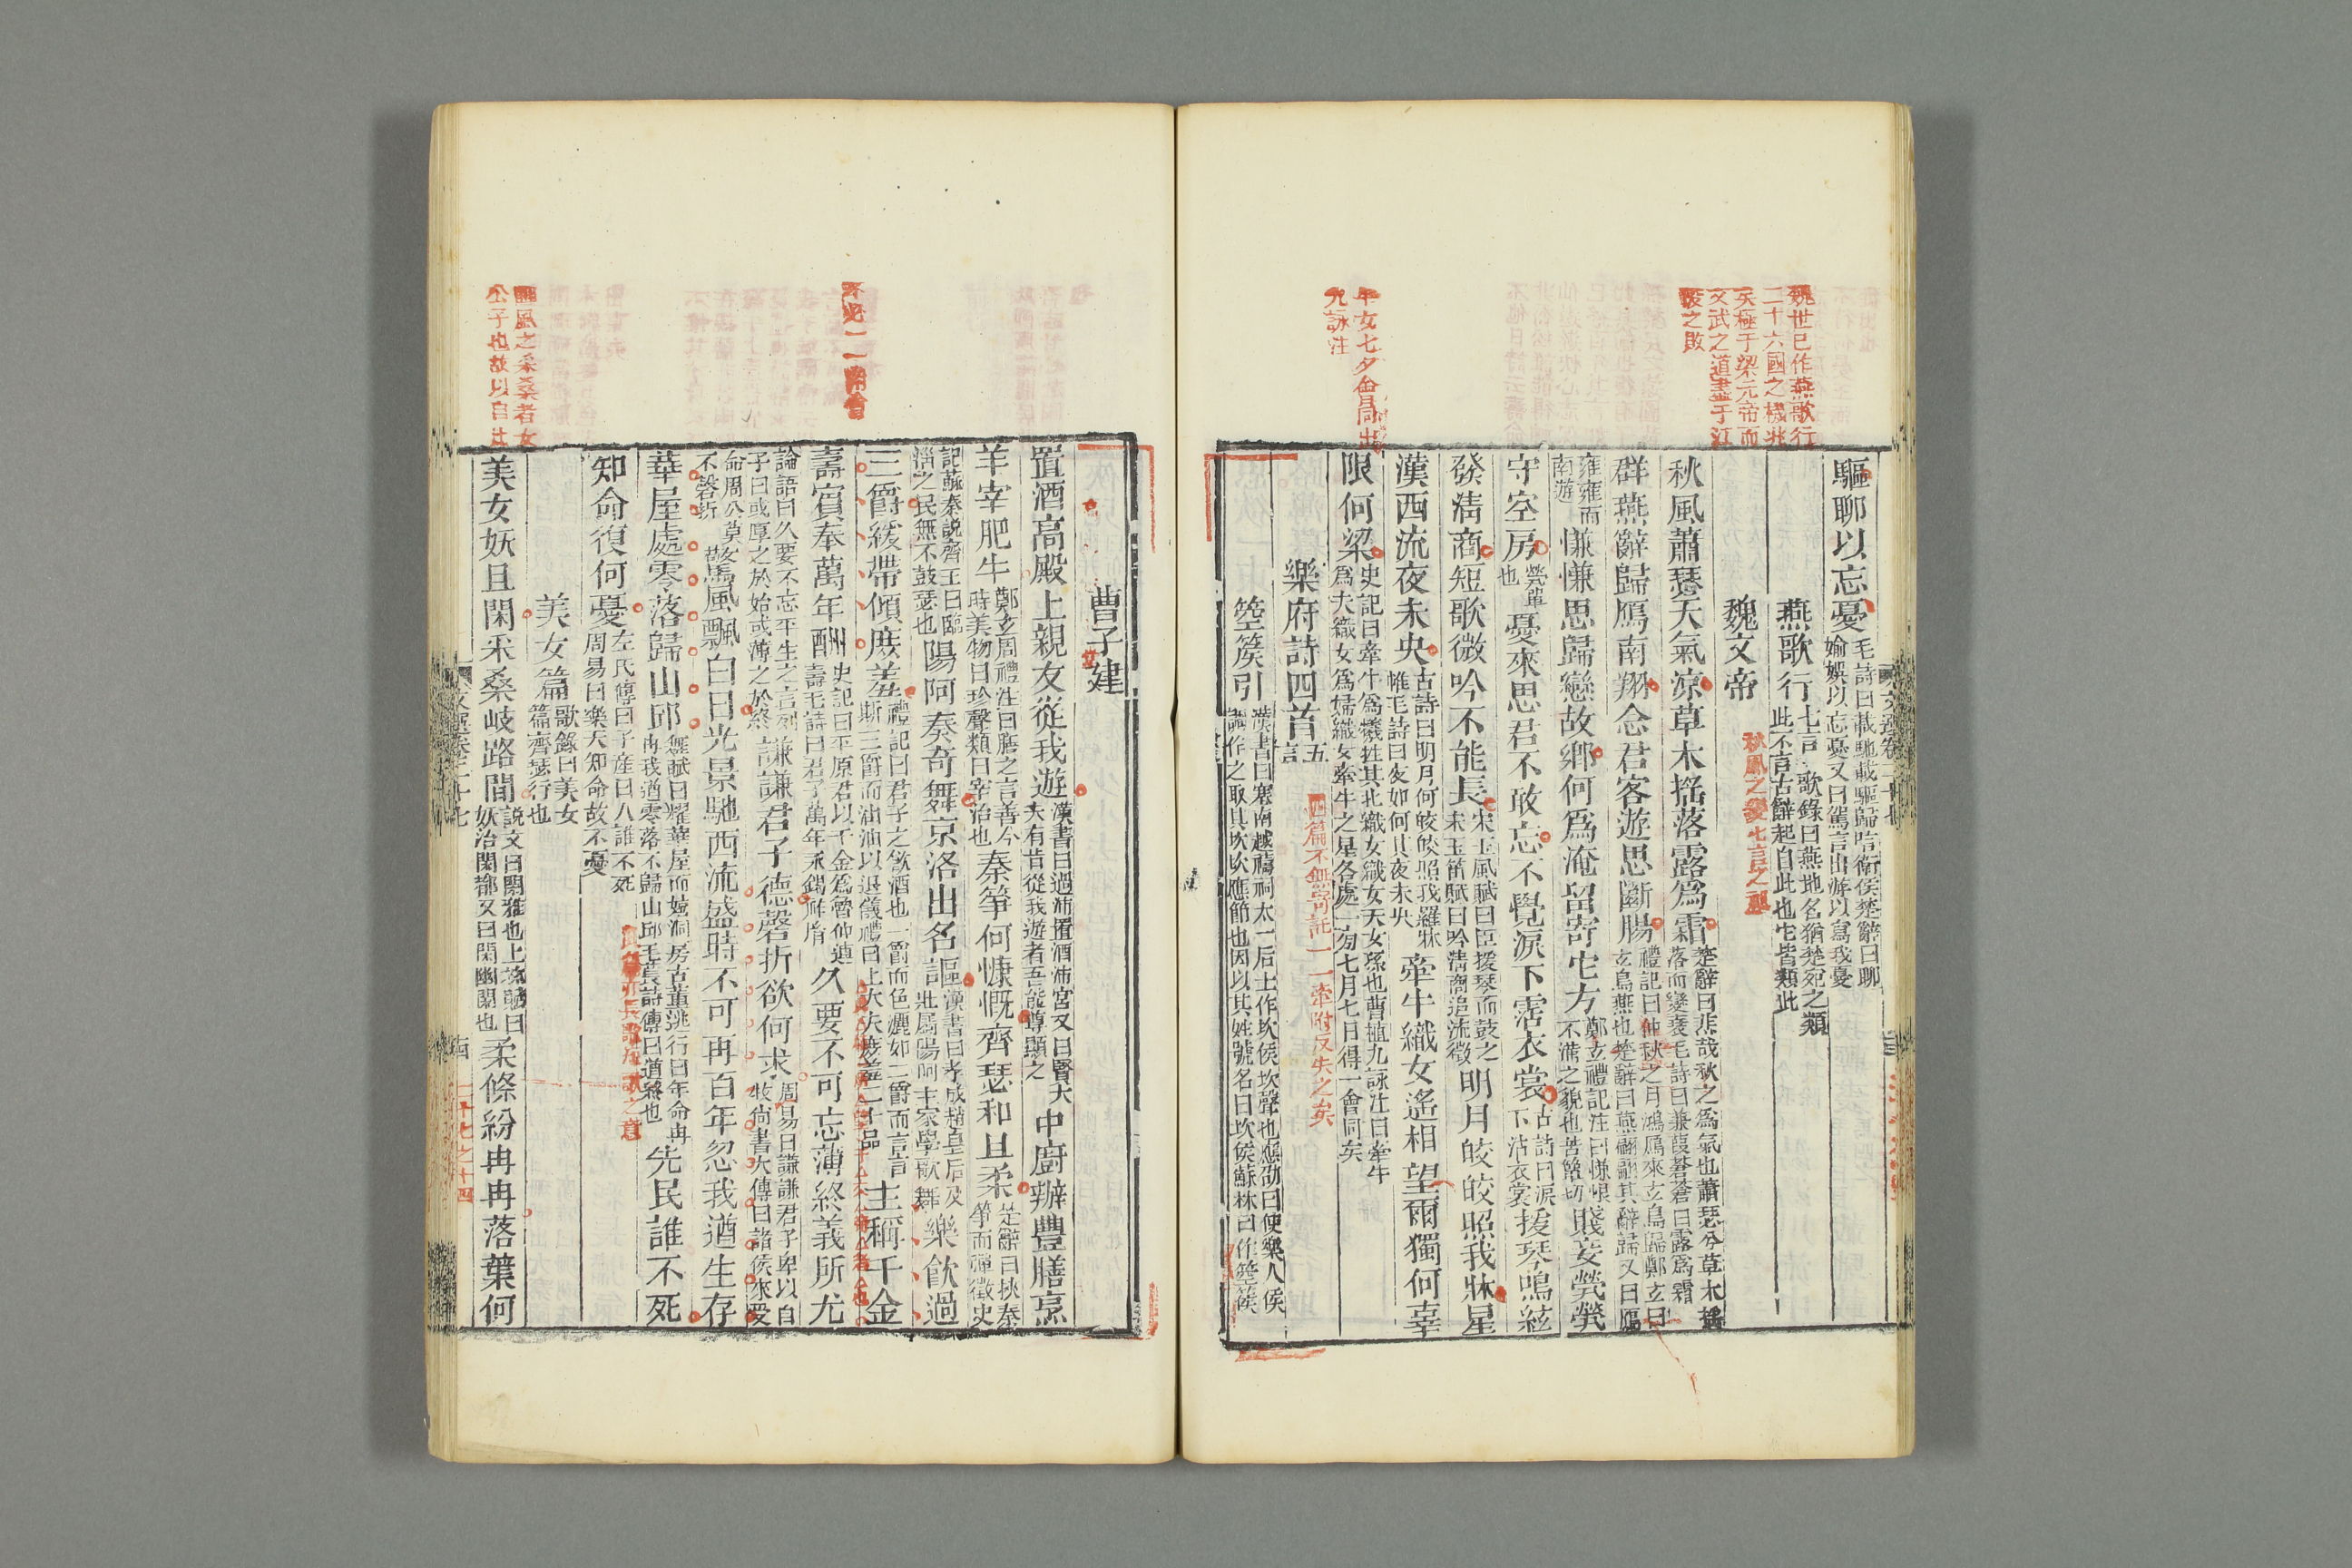 魏世已作燕歌行
二十六國之機兆
矣極于梁元帝而
文武之道盡于江
陵之敗
驅聊以忘憂
毛詩曰載馳載驅歸唁衛侯楚辭曰聊
媮娛以忘憂又曰駕言出游以寫我憂
燕歌行
七言 歌錄曰燕地名猶楚宛之類
此不言古辭起自此也它皆類此
魏文帝
秋風之變七言之祖
秋風蕭瑟天氣涼草木搖落露為霜
楚辭曰悲哉秋之為氣也蕭瑟兮草木搖
落而變衰毛詩曰兼葭蒼蒼白露為霜
群燕辭歸鴈南翔念君客遊思斷腸
禮記曰仲秋之月鴻鴈來玄鳥歸鄭玄曰
玄鳥燕也楚辭曰燕翩翩其辭歸又曰鴈
雍雍而
南遊
慊慊思歸戀故鄉何為淹留寄它方
鄭玄禮記注曰慊恨
不滿之貌也苦簟切
賤妾煢煢
守空房
煢單
也
憂來思君不敢忘不覺淚下霑衣裳
古詩曰淚
下沾衣裳
援琴鳴絃
發清商短歌微吟不能長
宋玉風賦曰臣援琴而鼓之
宋玉笛賦曰吟清商追流徵
明月皎皎照我牀星
漢西流夜未央
古詩曰明月何皎皎照我羅牀
帷毛詩曰夜如何其夜未央
牽牛織女遙相望爾獨何辜
限何梁
史記曰牽牛為犧牲其北織女織女天女孫也曹植九詠注曰牽牛
為夫織女為婦織女牽牛之星各處一旁七月七日得一會同矣
牛女七夕會同出
九詠注
樂府詩四首
五
言
四篇不無寄託一一牽附反失之矣
箜篌引
漢書曰塞南越禱祠太一后土作坎侯坎聲也應劭曰使樂人侯
調作之取其坎坎應節也因以其姓號名曰坎侯蘇林曰作箜篌
曹子建
置酒高殿上親友從我遊
漢書曰過沛置酒沛宮又曰賢大
夫有肯從我遊者吾能尊顯之
中廚辦豐膳烹
羊宰肥牛
鄭玄周禮注曰膳之言善今
時美物曰珍聲類曰宰治也
秦箏何慷慨齊瑟和且柔
楚辭曰挾秦
箏而彈徵史
記蘇秦說齊王曰臨
淄之民無不鼓瑟也
陽阿奏奇舞京洛出名謳
漢書曰孝成趙皇后及
壯屬陽阿主家學歌舞
樂飲過
三爵緩帶傾庶羞
禮記曰君子之飲酒也一爵而色灑如二爵而言言
斯三爵而油油以退儀禮曰上大夫庶羞二十品
主稱千金
壽賓奉萬年酬
史記曰平原君以千金為魯仲連
壽毛詩曰君子萬年永錫祚胤
久要不可忘薄終義所尤
論語曰久要不忘平生之言列
子曰或厚之於始或薄之於終
謙謙君子德磬折欲何求
周易曰謙謙君子卑以自
牧尚書大傳曰諸侯來受
命周公莫
不磬折
驚風飄白日光景馳西流盛時不可再百年忽我遒生存
華屋處零落歸山邱
無賦曰耀華屋而嬉洞房古董逃行曰年命冉
冉我遒零落下歸山邱毛萇詩傳曰遒終也
先民誰不死
知命復何憂
左氏傳曰子產曰人誰不死
周易曰樂天知命故不憂
不必一一關會
美女篇
歌錄曰美女
篇齊瑟行也
國風之采桑者女
公子也故以自比
美女妖且閑采桑岐路間
說文曰閑雅也上林賦曰
妖冶閑都又曰閑幽閑也
柔條紛冉冉落葉何
二十七之十四